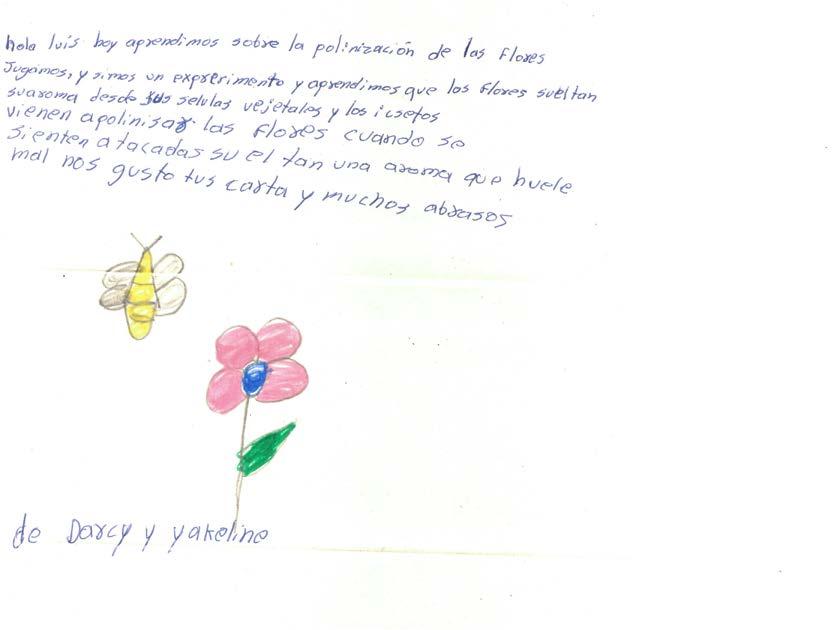 hola luis hoy aprendimos sobre la polinización de las flores
Jugamos, y simos un exprerimento y aprendimos que las flores sueltan
suaroma desde sus selulas vejetales y los icsetos
vienen apolinisar las flores cuando se
sienten atacadas sueltan una aroma que huele
mal nos gusto tus carta y muchos abrasos
de Darcy y yakeline